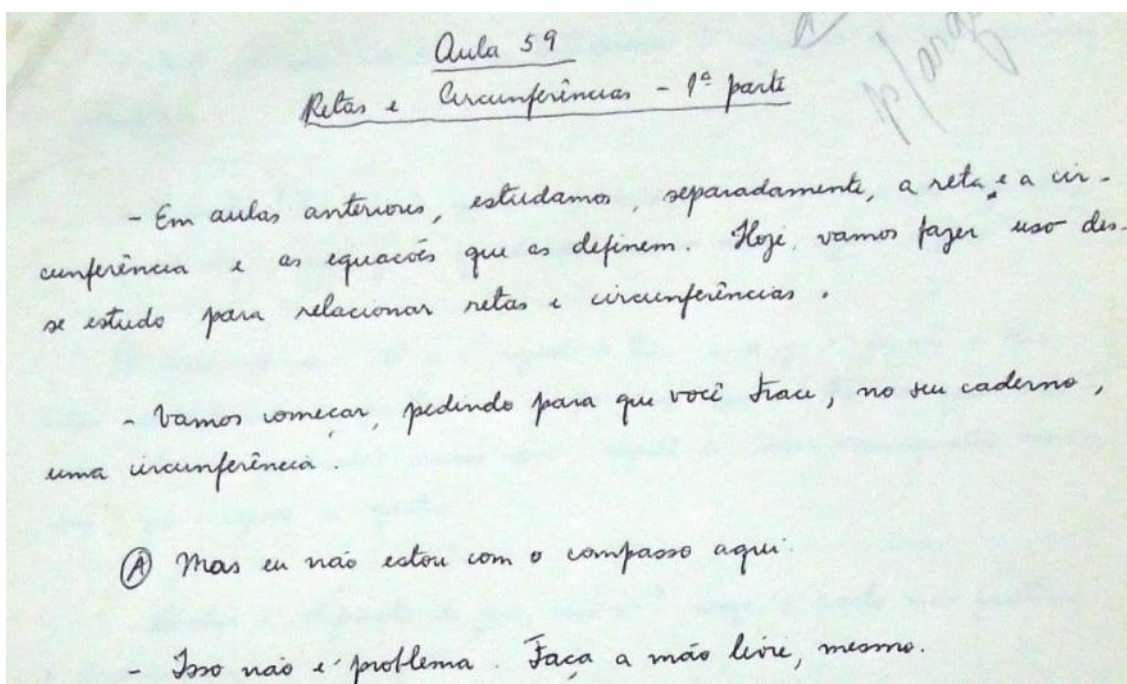 Aula 59
Retas e Circunferências - 1ª parte
- Em aulas anteriores, estudamos, separadamente, a reta, e a cir-
cunferência e as equações que as definem. Hoje, vamos fazer uso des-
se estudo para relacionar retas e circunferências.
- Vamos começar, pedindo para que você trace, no seu caderno,
uma circunferência.
(A) Mas eu não estou com o compasso aqui.
- Isso não é problema. Faça a mão livre, mesmo.